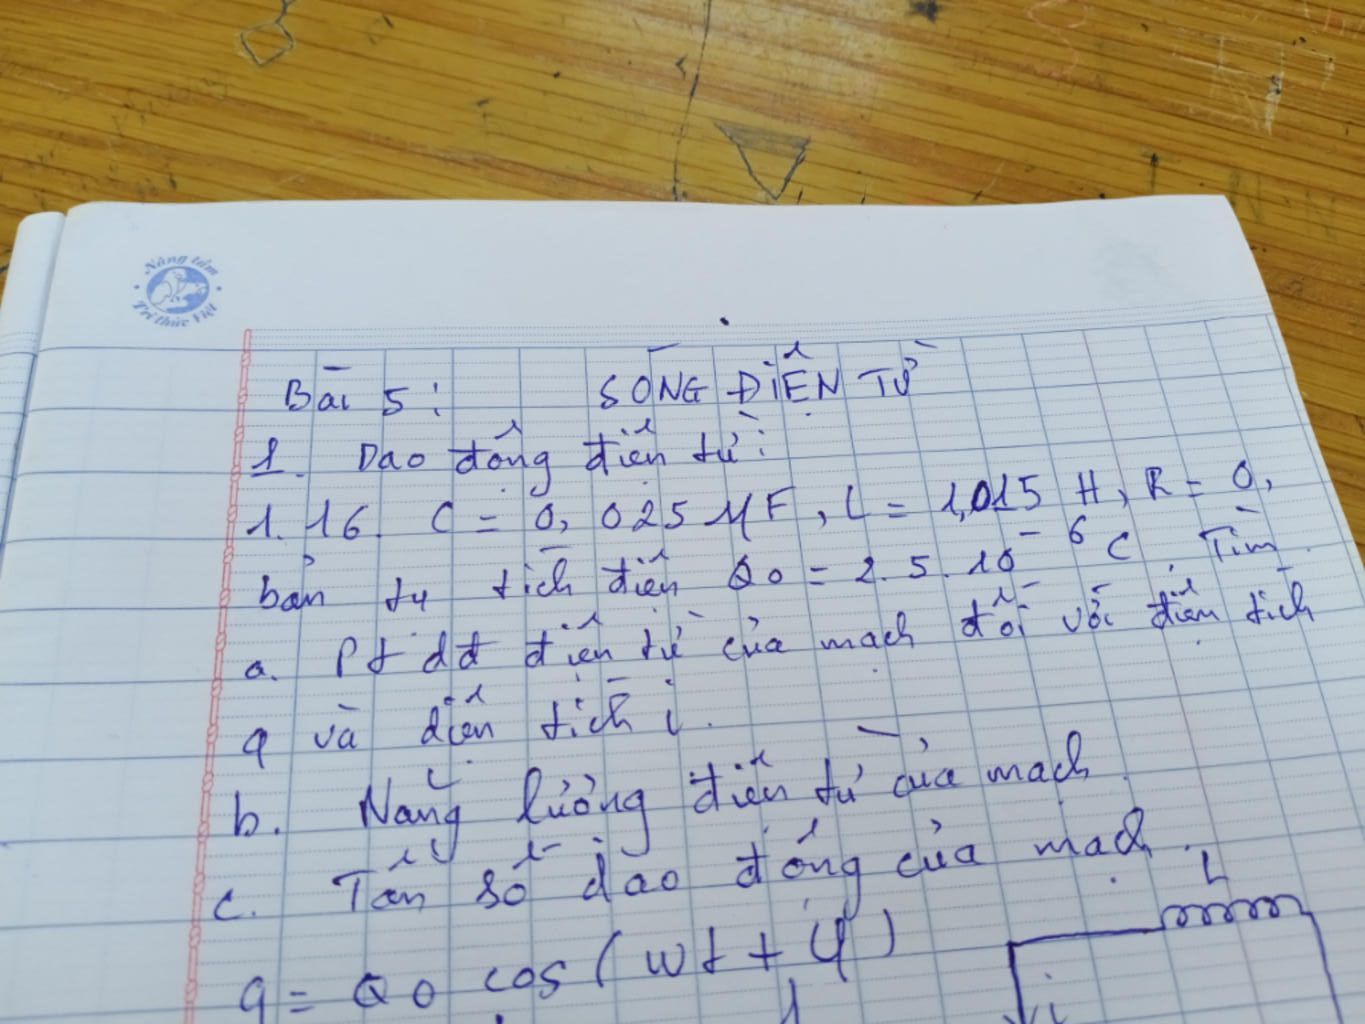 Nâng tầm
Tri thức Việt
Bài 5: SÓNG ĐIỆN TỪ
1. Dao động điện từ:
1.16. C = 0,025 µF, L = 1,015 H, R = 0,
bản tụ tích điện Q0 = 2.5.10^-6 C. Tìm
a. Pt dđ điện từ của mạch đối với điện tích
q và điện tích i.
b. Năng lượng điện từ của mạch
c. Tần số dao động của mạch.
L
q = Q0 cos(wt + φ)
i